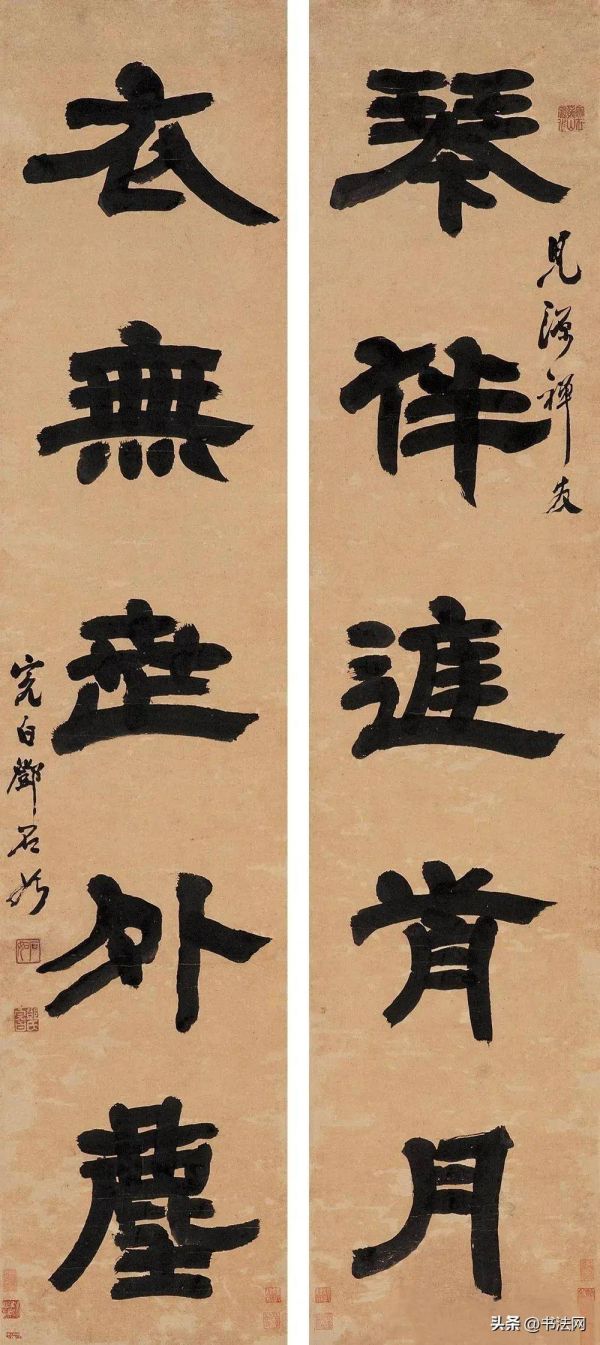 見源禪友
琴伴月
衣無世外塵
完白鄧石如
头条 @书法网